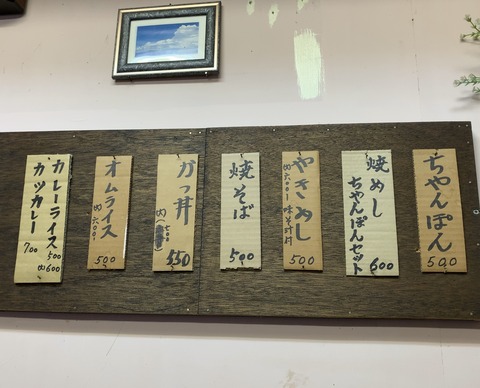 ちゃんぽん
500
焼めし
ちゃんぽんセット
600
やきめし
(大)600円 味そ汁付
500
焼そば
500
がっ丼
550
オムライス
(大)600円
500
カレーライス 500
(大)600
カツカレー 700